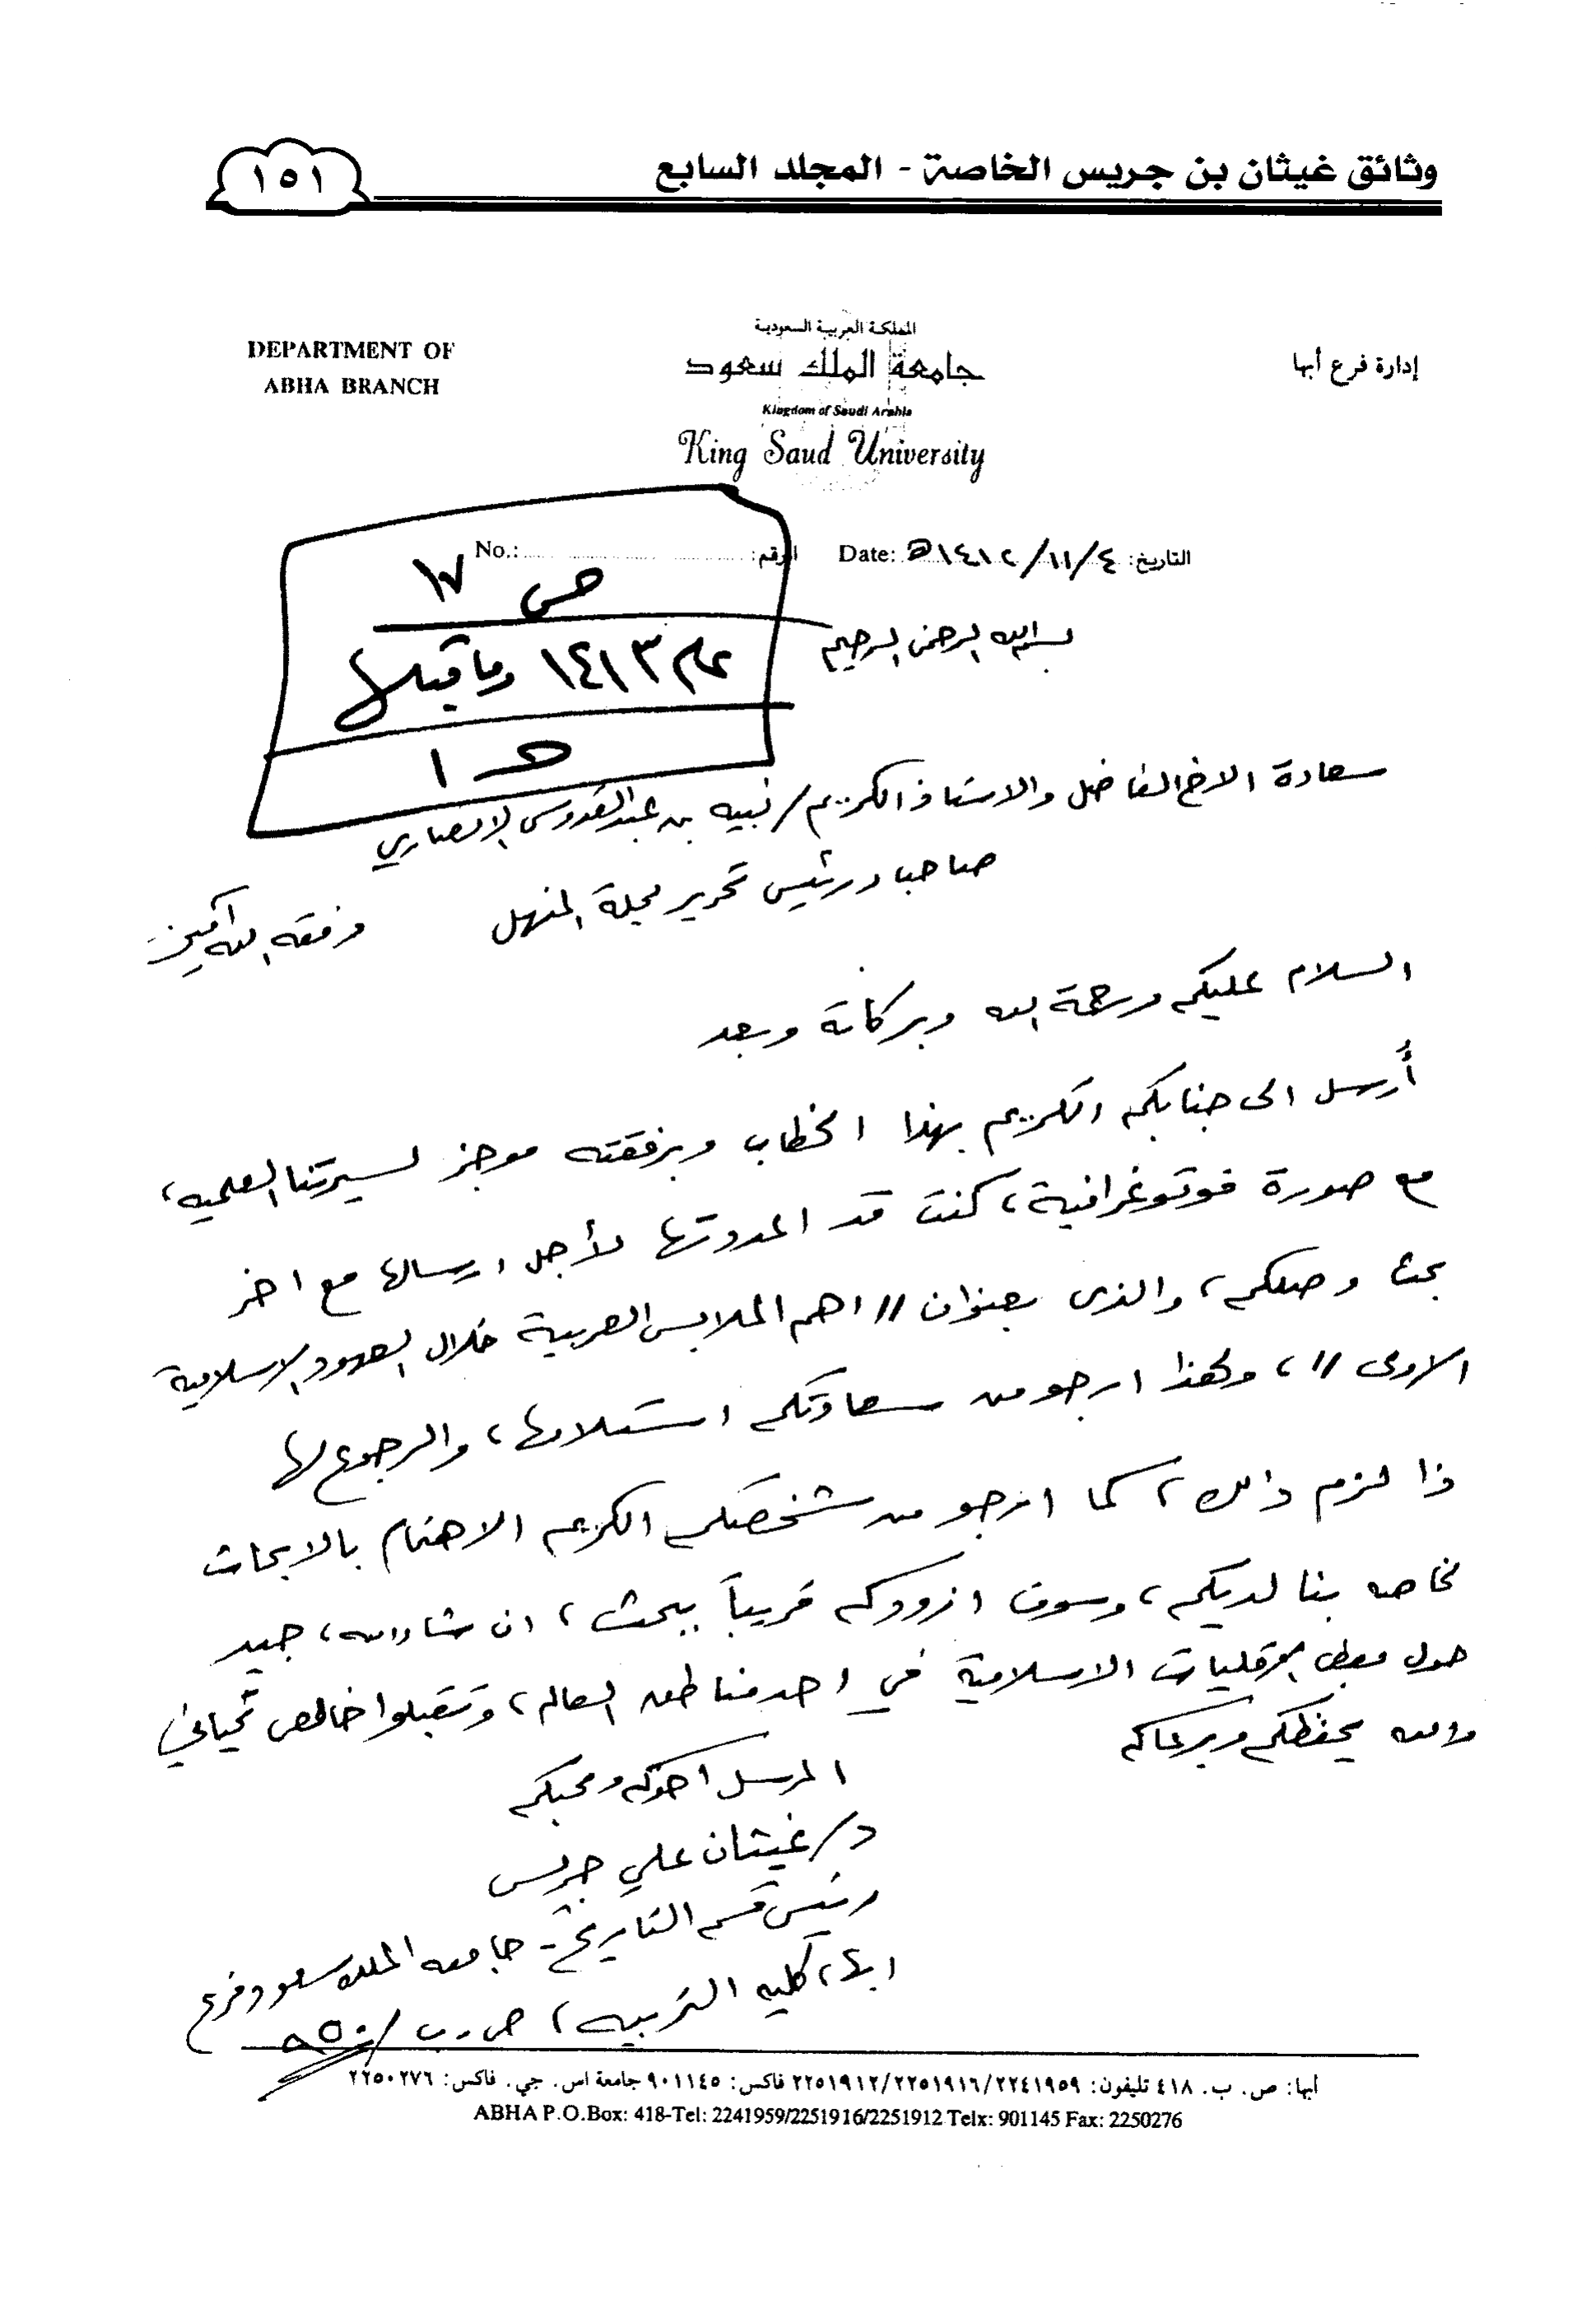 وثائق غيثان بن جريس الخاصة - المجلد السابع
١٥١
المملكة العربية السعودية
جامعة الملك سعود
Kingdom of Saudi Arabia
King Saud University
إدارة فرع أبها
DEPARTMENT OF
ABHA BRANCH
التاريخ: ١٤١٢/١١/٤هـ Date:
الرقم: No.:
ص ١٧
عام ١٤١٣ وما قبلها
ح ١
بسم الله الرحمن الرحيم
سعادة الاخ الفاضل والاستاذ الكريم / نبيه بن عبدالقدوس الانصاري
صاحب ورئيس تحرير مجلة المنهل وفقه الله آمين
السلام عليكم ورحمة الله وبركاته وبعد
أرسل الى جنابكم الكريم بهذا الخطاب وبرفقته موجز لسيرتنا العلميه،
مع صورة فوتوغرافية، كنت قد اعددتها لأجل ارسالها مع اخر
بحث وصلكم، والذى بعنوان // اهم الملابس العربية خلال العهود الاسلامية
الاولى //، ولهذا ارجو من سعادتكم استلامها، والرجوع لها
ذا لزم ذلك، كما ارجو من شخصكم الكريم الاهتمام بالابحاث
خاصه بنا لديكم، وسوف ازودكم قريباً ببحث، ان شاء الله، جيد
حول بعض الاقليات الاسلامية في احد مناطق العالم، وتقبلوا خالص تحياتي
والله يحفظكم ويرعاكم
المرسل اخوكم ومحبكم
د/ غيثان علي جريس
رئيس قسم التاريخ - جامعه الملك سعود فرع
ابها، كليه التربيه، ص.ب/ ٩٥٠
أبها: ص. ب. ٤١٨ تليفون: ٢٢٥١٩١٢/٢٢٥١٩١٦/٢٢٤١٩٥٩ فاكس: ٩٠١١٤٥ جامعة اس. جي. فاكس: ٢٢٥٠٢٧٦
ABHA P.O.Box: 418-Tel: 2241959/2251916/2251912 Telx: 901145 Fax: 2250276